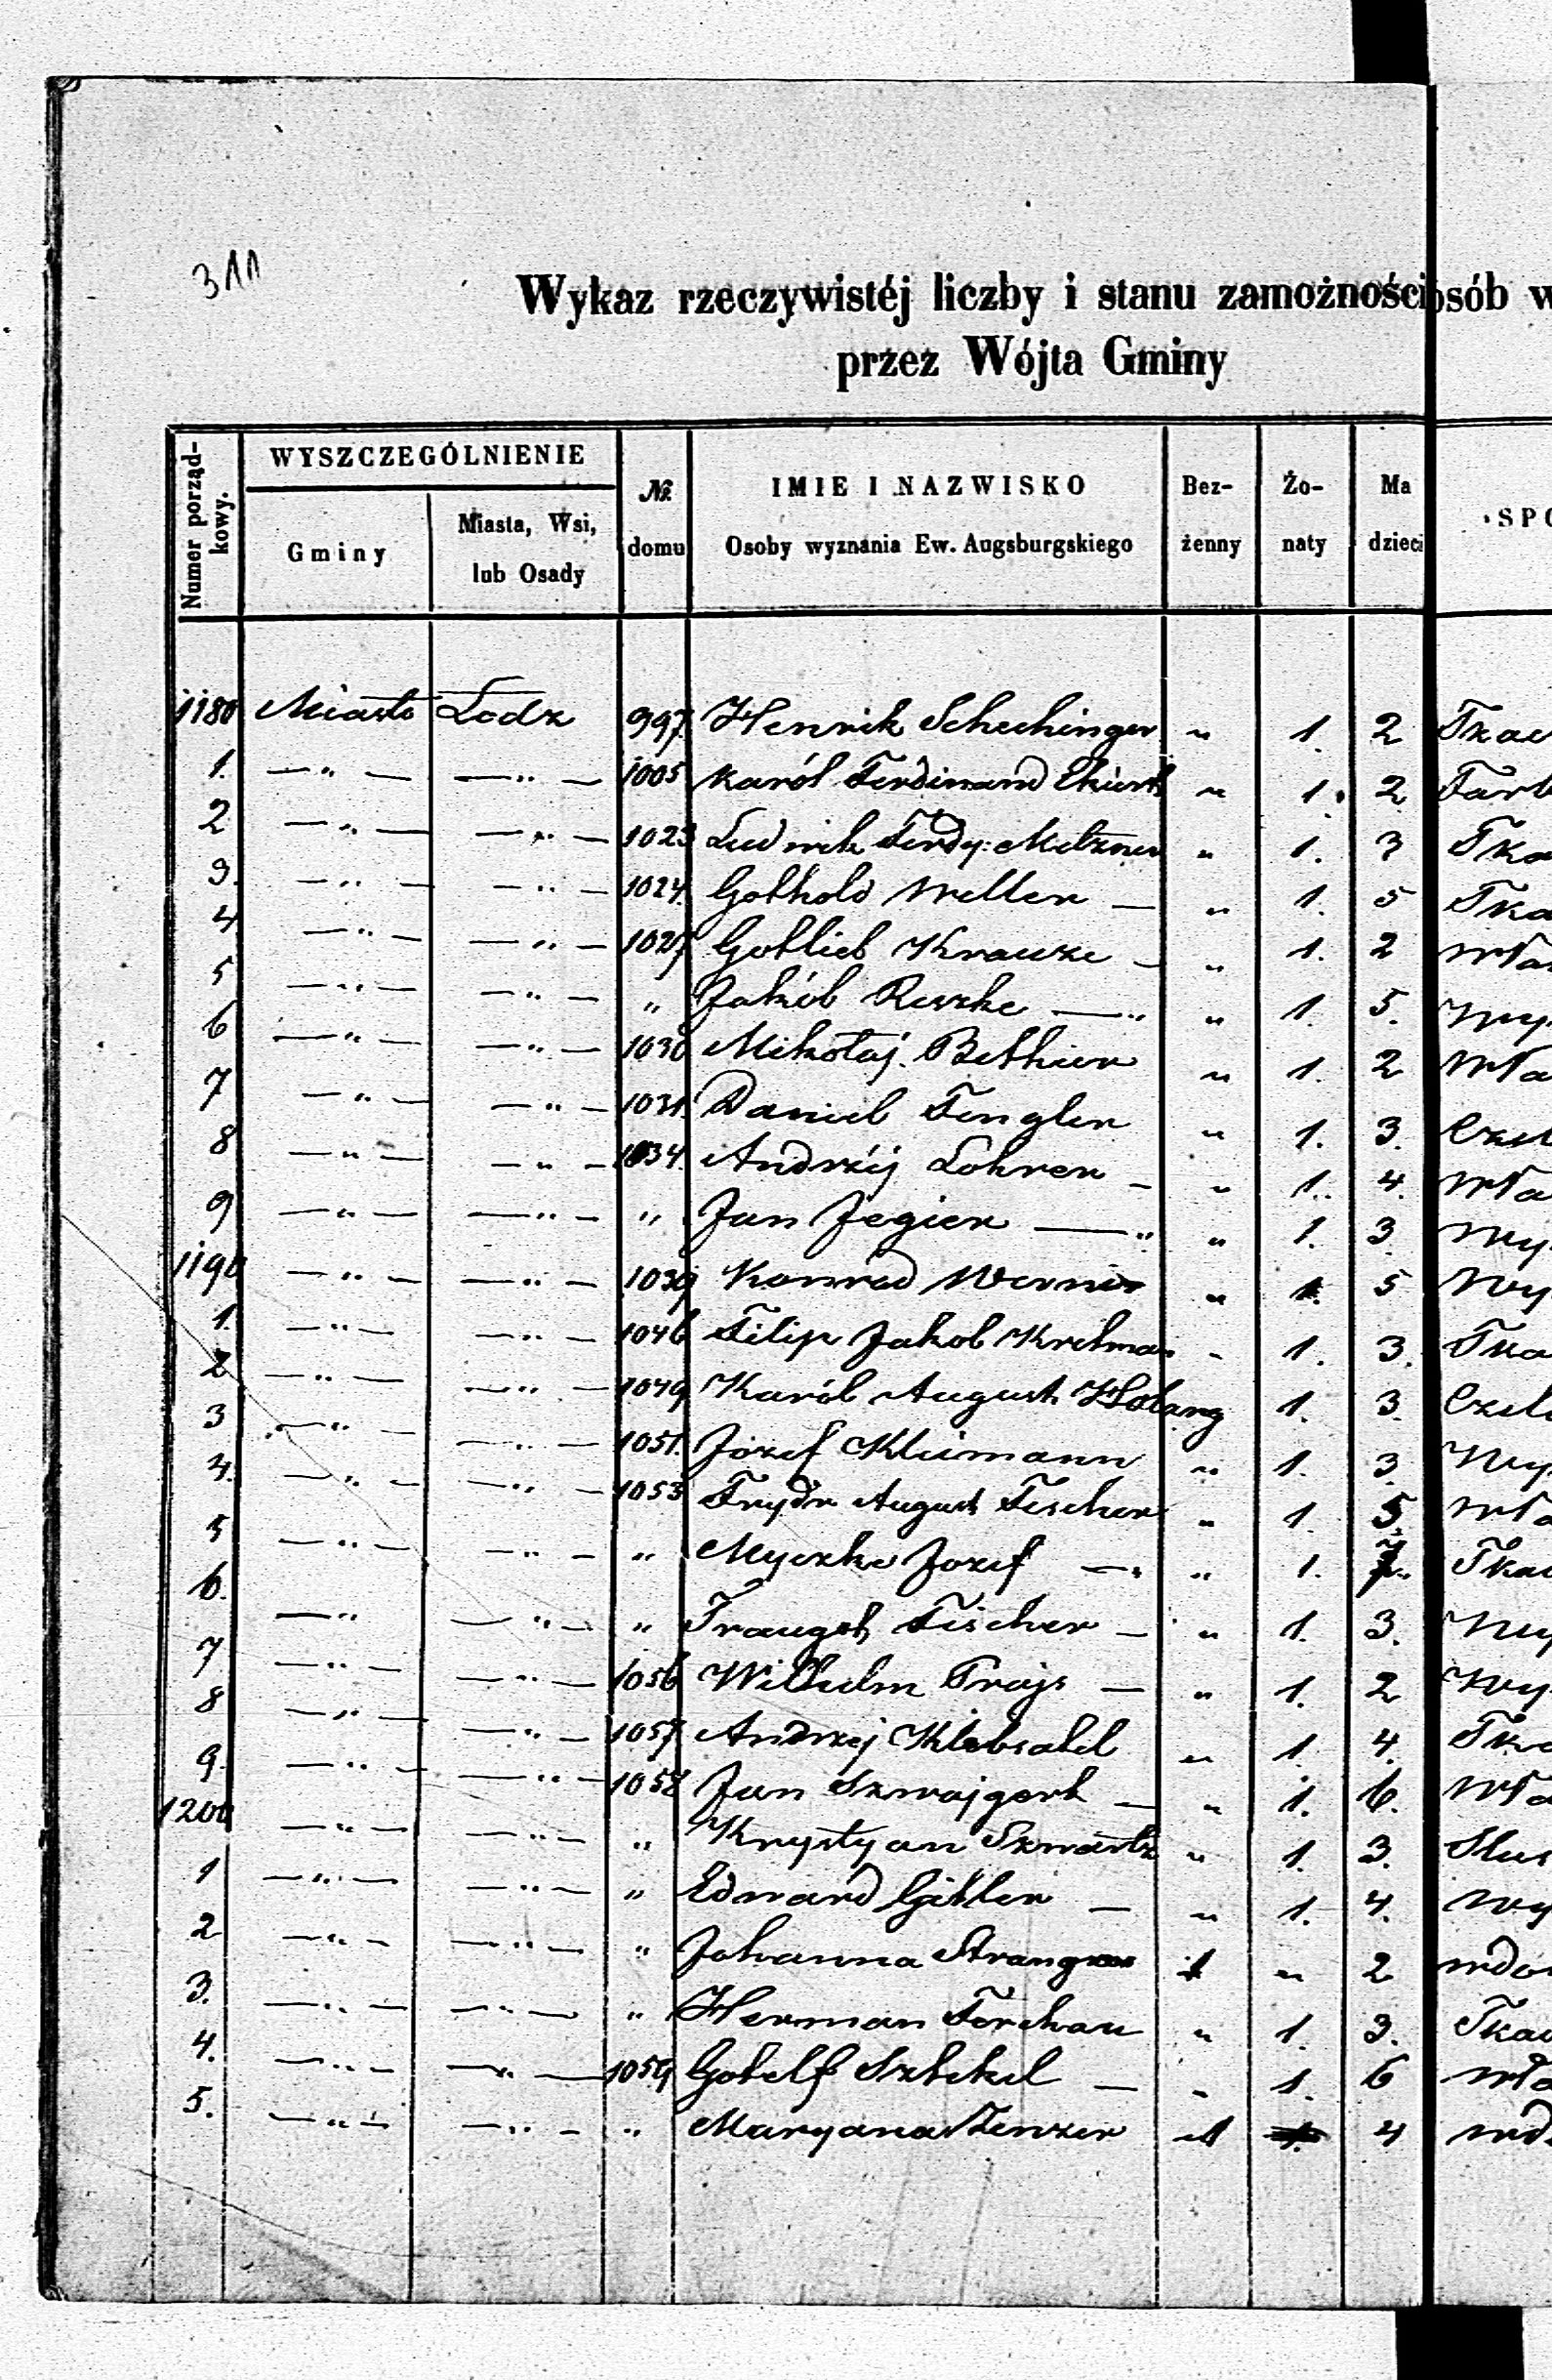 311
Wykaz rzeczywistéj liczby i stanu zamożności osób w
przez Wójta Gminy
Numer porządkowy. WYSZCZEGÓLNIENIE № domu IMIE I NAZWISKO Bez- Żo- Ma SPO
Gminy Miasta, Wsi, lub Osady Osoby wyznania Ew. Augsburgskiego żenny naty dzieci
1180 Miasto Łodz 997 Henrik Schechinger " 1. 2 Tkac
1. —"— —"— 1005 Karól Ferdinand " 1. 2 Farb
2 —"— —"— 1023 Ludwik Ferdy: Melzner " 1. 3 Tka
3. —"— —"— 1024. Gothold Weller — " 1. 5 Tka
4 —"— —"— 1027 Gotlieb Krauze — " 1. 2 Wła
5 —"— —"— " Jakób Reszke —" " 1. 5. Wy
6 —"— —"— 1030 Mikołaj Bethier " 1. 2 Wła
7 —"— —"— 1031. Daniel Fengler " 1. 3. Czel
8 —"— —"— 1034. Andrzéj Lohrer — " 1. 4. Wła
9 —"— —"— " Jan Jegier —" " 1. 3 Wy
1190 —"— —"— 1039 Konrad Werner " 1. 5 Wy
1. —"— —"— 1046 Filip Jakob - 1. 3. Tka
2 —"— —"— 1049 Karól August 1. 3. Czela
3 —"— —"— 1051. Józef Kleimann " 1. 3. Wy
4. —"— —"— 1053 Frydr August Fischer " 1. 5. Wła
5 —"— —"— " Myczke Jozef — " 1. Tkac
6. —"— —"— " Traugot Fischer — " 1. 3. Wy
7 —"— —"— 1056 Wilhelm Frajs — " 1. 2 Wy
8 —"— —"— 1057 Andrzej Klebsatel " 1. 4. Tka
9. —"— —"— 1058 Jan Szwajgert — " 1. 6. Wła
1200 —"— —"— " Krystyan Szwartz " 1. 3. Slus
1 —"— —"— " Edward — " 1. 4. Wy
2 —"— —"— " Johanna 1 " 2 wdo
3. —"— —"— " Herman Torchau " 1. 3. Tkac
4. —"— —"— 1059 Gotelf Sztekel — " 1. 6 Wła
5. —"— —"— " Maryana Tenzer 1 4 wd